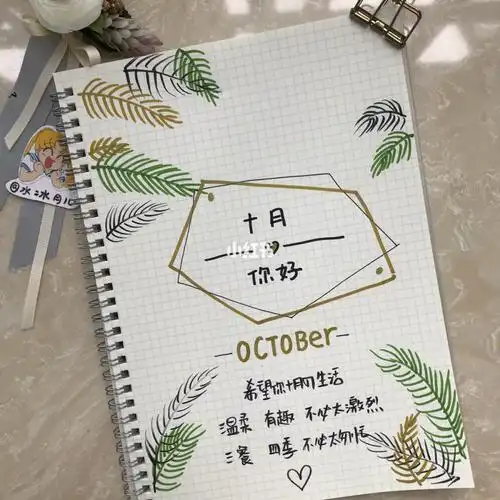 @水冰月儿
十月
小红书
你好
-OCTOBer-
希望你十月的生活
温柔 有趣 不必太激烈
三餐 四季 不必太匆忙